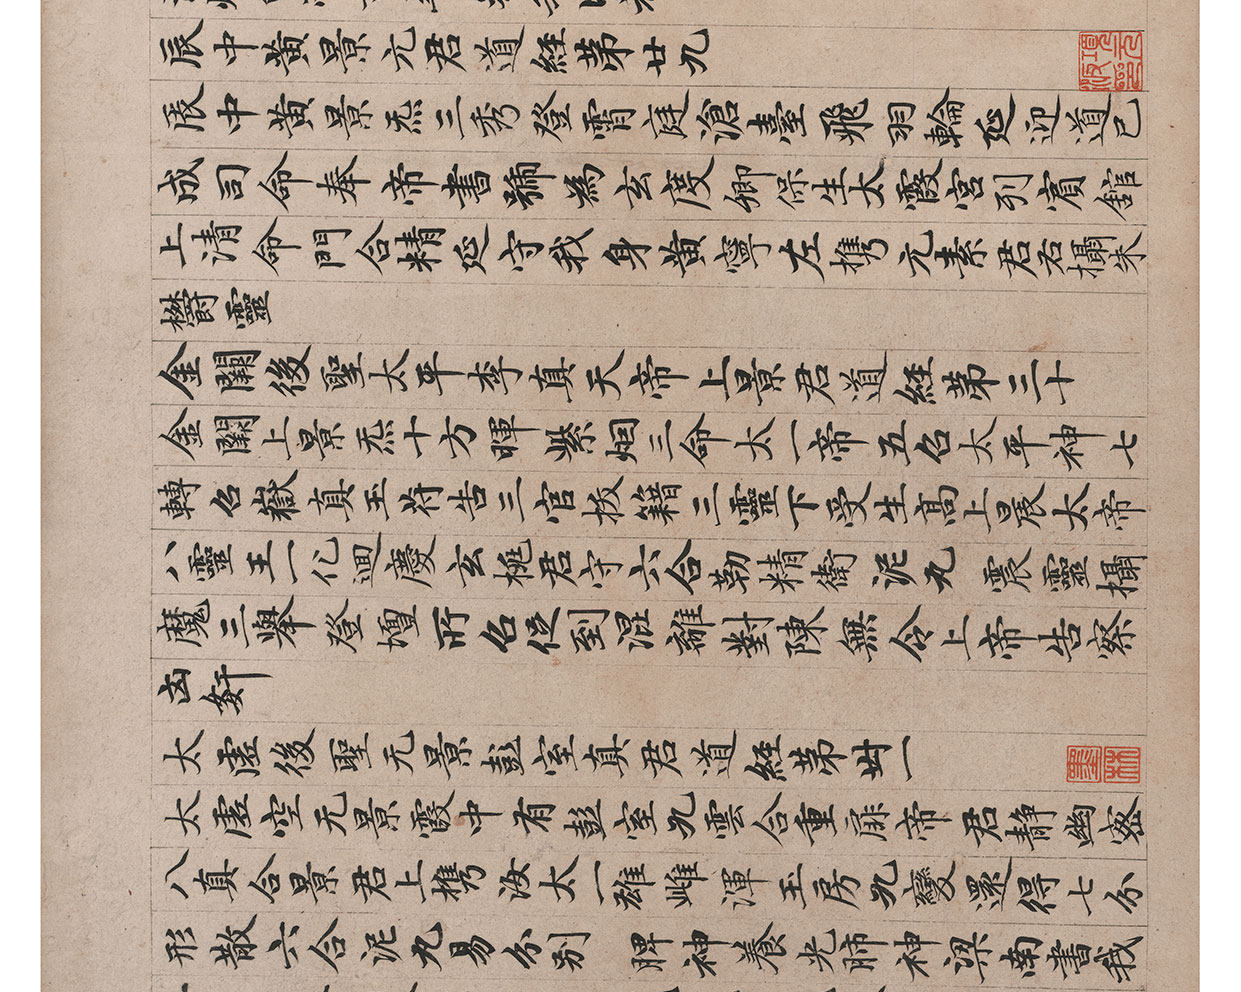 辰中黃景元君道經第廿九
辰中黃景炁三秀登霄庭滄臺飛羽輪延迎道已
成司命奉帝書號為玄度卿保生太霞宮引賓舘
上清命門合精延守我身黃寧左攜元素君右攝朱
欝靈
金闕後聖太平李真天帝上景君道經第三十
金闕上景炁十方暉紫烟三命太一帝五名太平神七
轉名嶽真玉符告三官拔籍三靈下受生高上晨太帝
八靈王一化迴慶玄梃君守六合勒精衛泥丸震靈攝
魔三舉登壇所名促到混離對陳無令上帝告察
凶奸
太虛後聖无景彭室真君道經第卅一
太虛空无景霞中有彭室九雲合重扉帝君靜幽密
八真合景君上攜汝太一雄雌渾玉房九變還得七分
形散六合泥丸易分別脾神養光肺神梁南書我